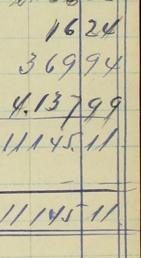 16 24
369 94
4.137 99
11145.11
11145 11